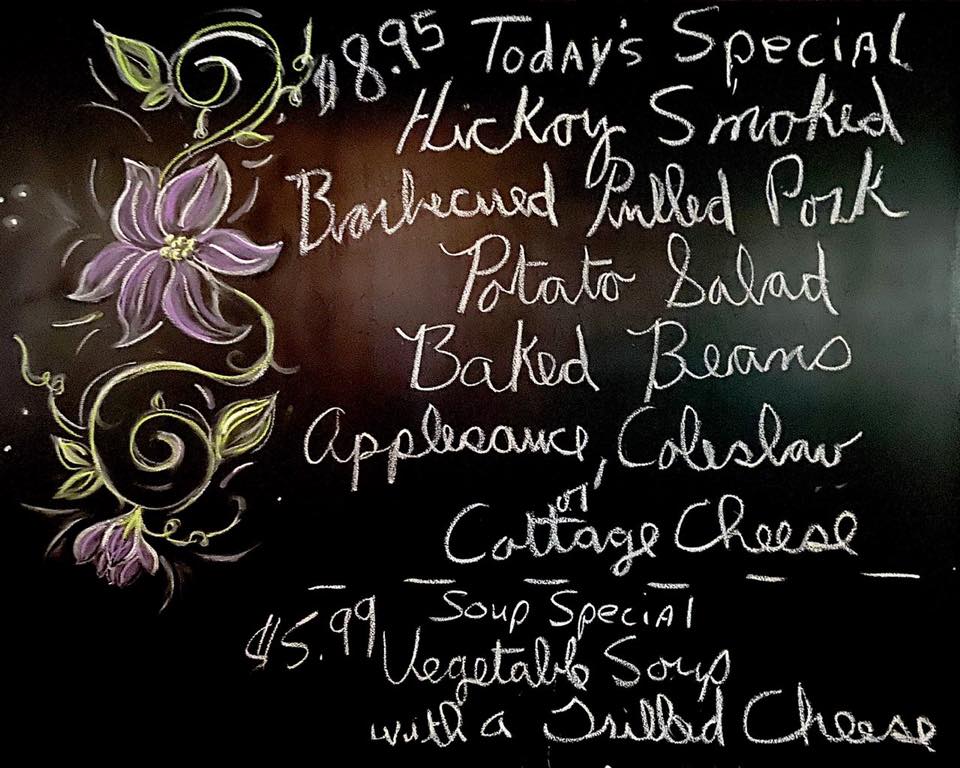 $8.95 Today's Special
Hickoy Smoked
Barbecued Pulled Pork
Potato Salad
Baked Beans
Applesauce, Coleslaw
or
Cottage Cheese
Soup Special
$5.99 Vegetable Soup
with a Grilled Cheese